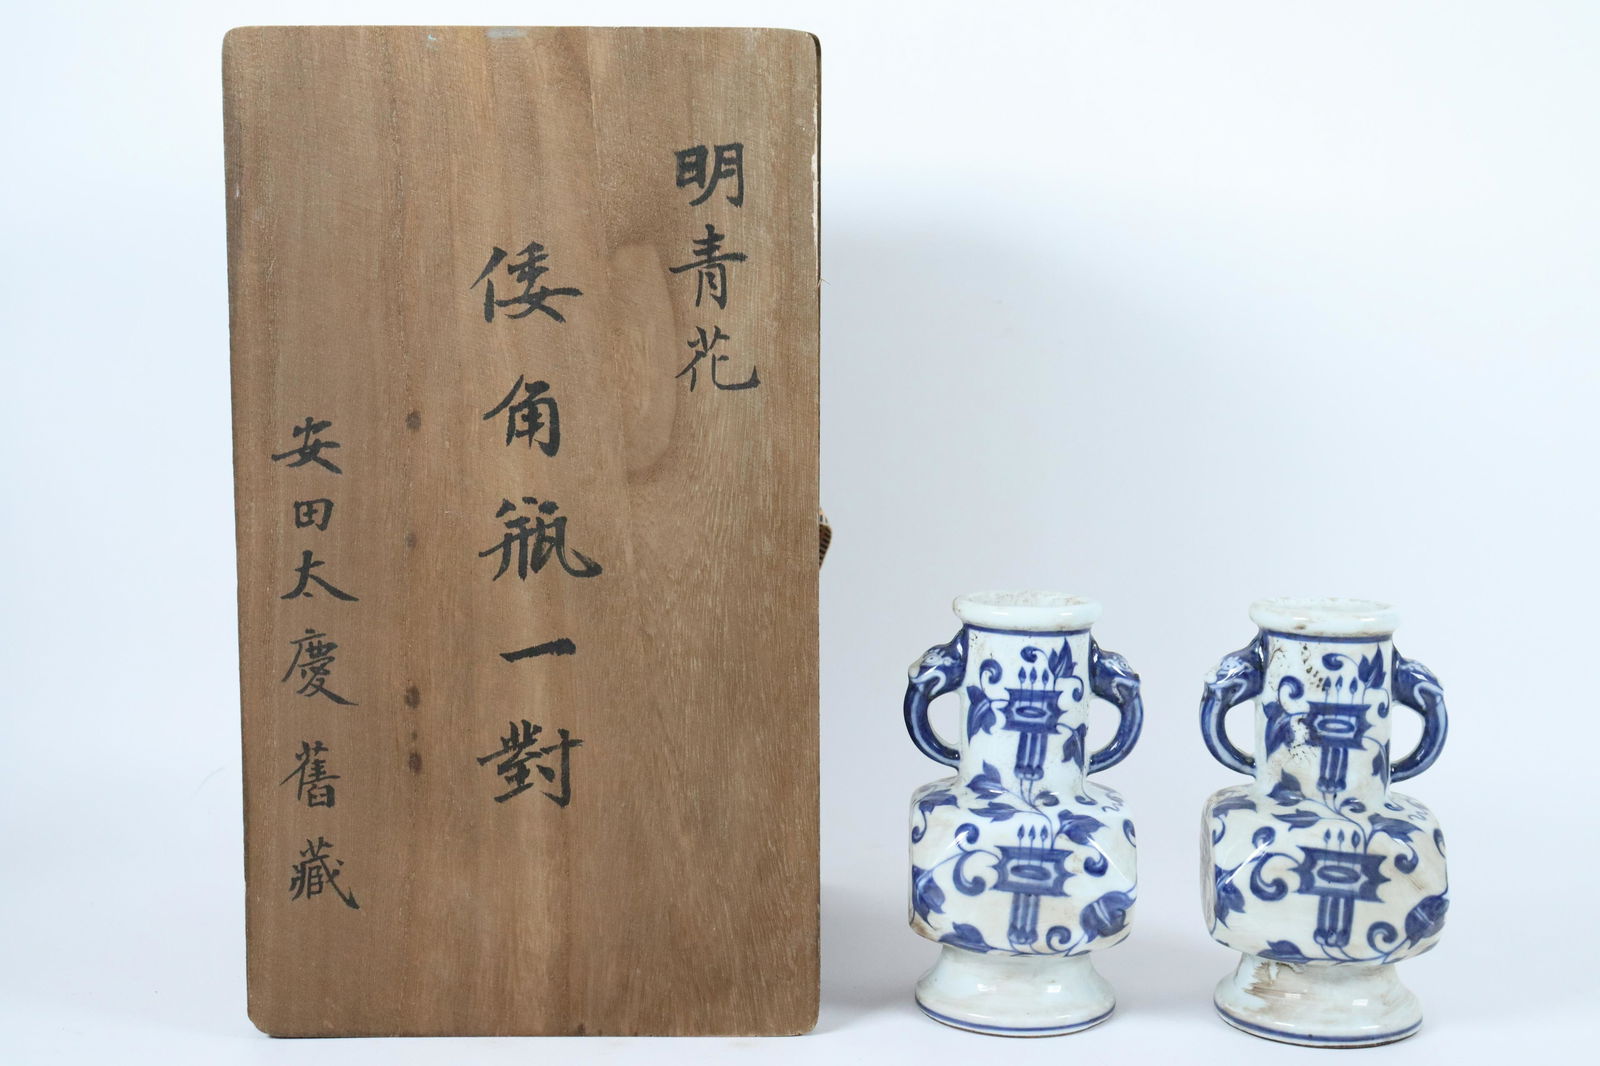 明青花
倭角瓶一對
安田太慶舊藏